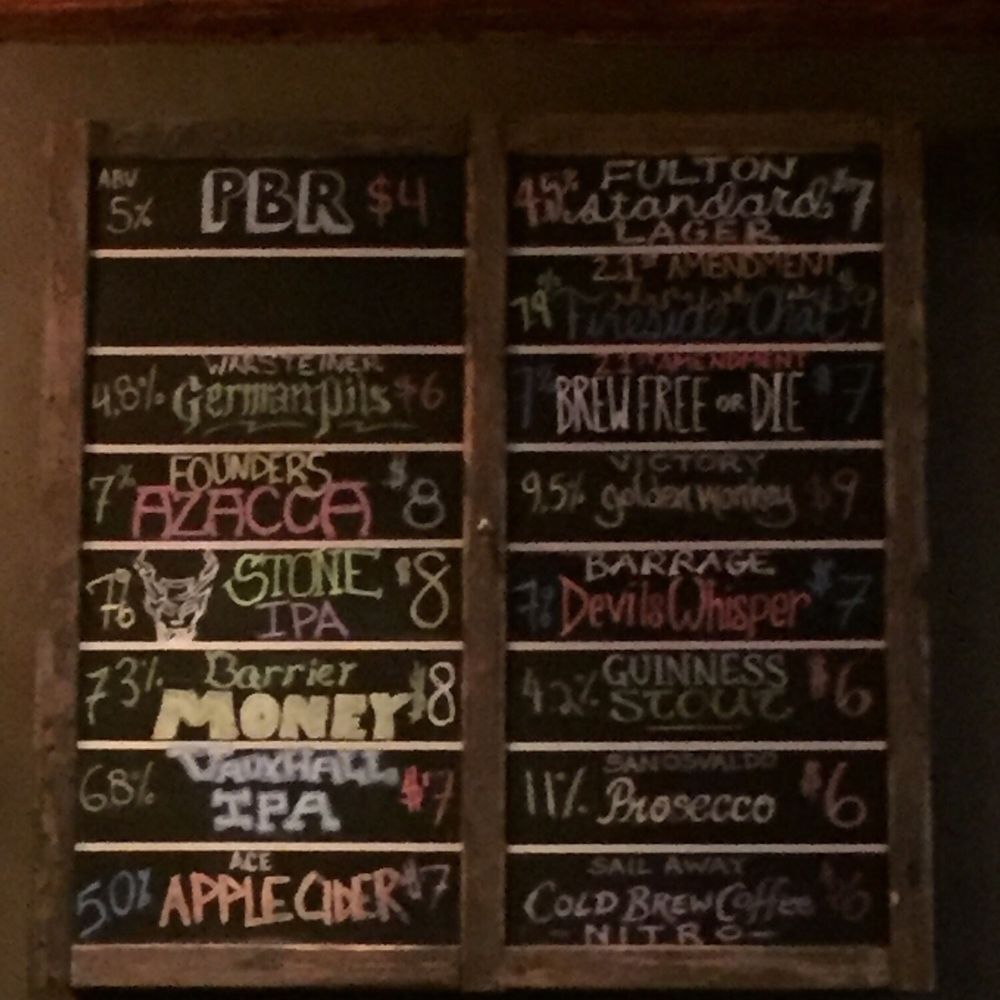 ABV
5% PBR $4
WARSTEINER
4.8% German Pils $6
FOUNDERS
7% AZACCA $8
STONE
7% IPA $8
Barrier
7.3% MONEY $8
VAUXHALL
6.8% IPA $7
ACE
5.0% APPLE CIDER $7
FULTON
standard $7
LAGER
21st AMENDMENT
7.9% Fireside Chat $9
21st AMENDMENT
7% BREW FREE OR DIE $7
VICTORY
9.5% golden monkey $9
BARRAGE
Devils Whisper $7
GUINNESS
4.2% STOUT $6
SAN OSVALDO
11% Prosecco $6
SAIL AWAY
COLD BREW Coffee $6
- NITRO -